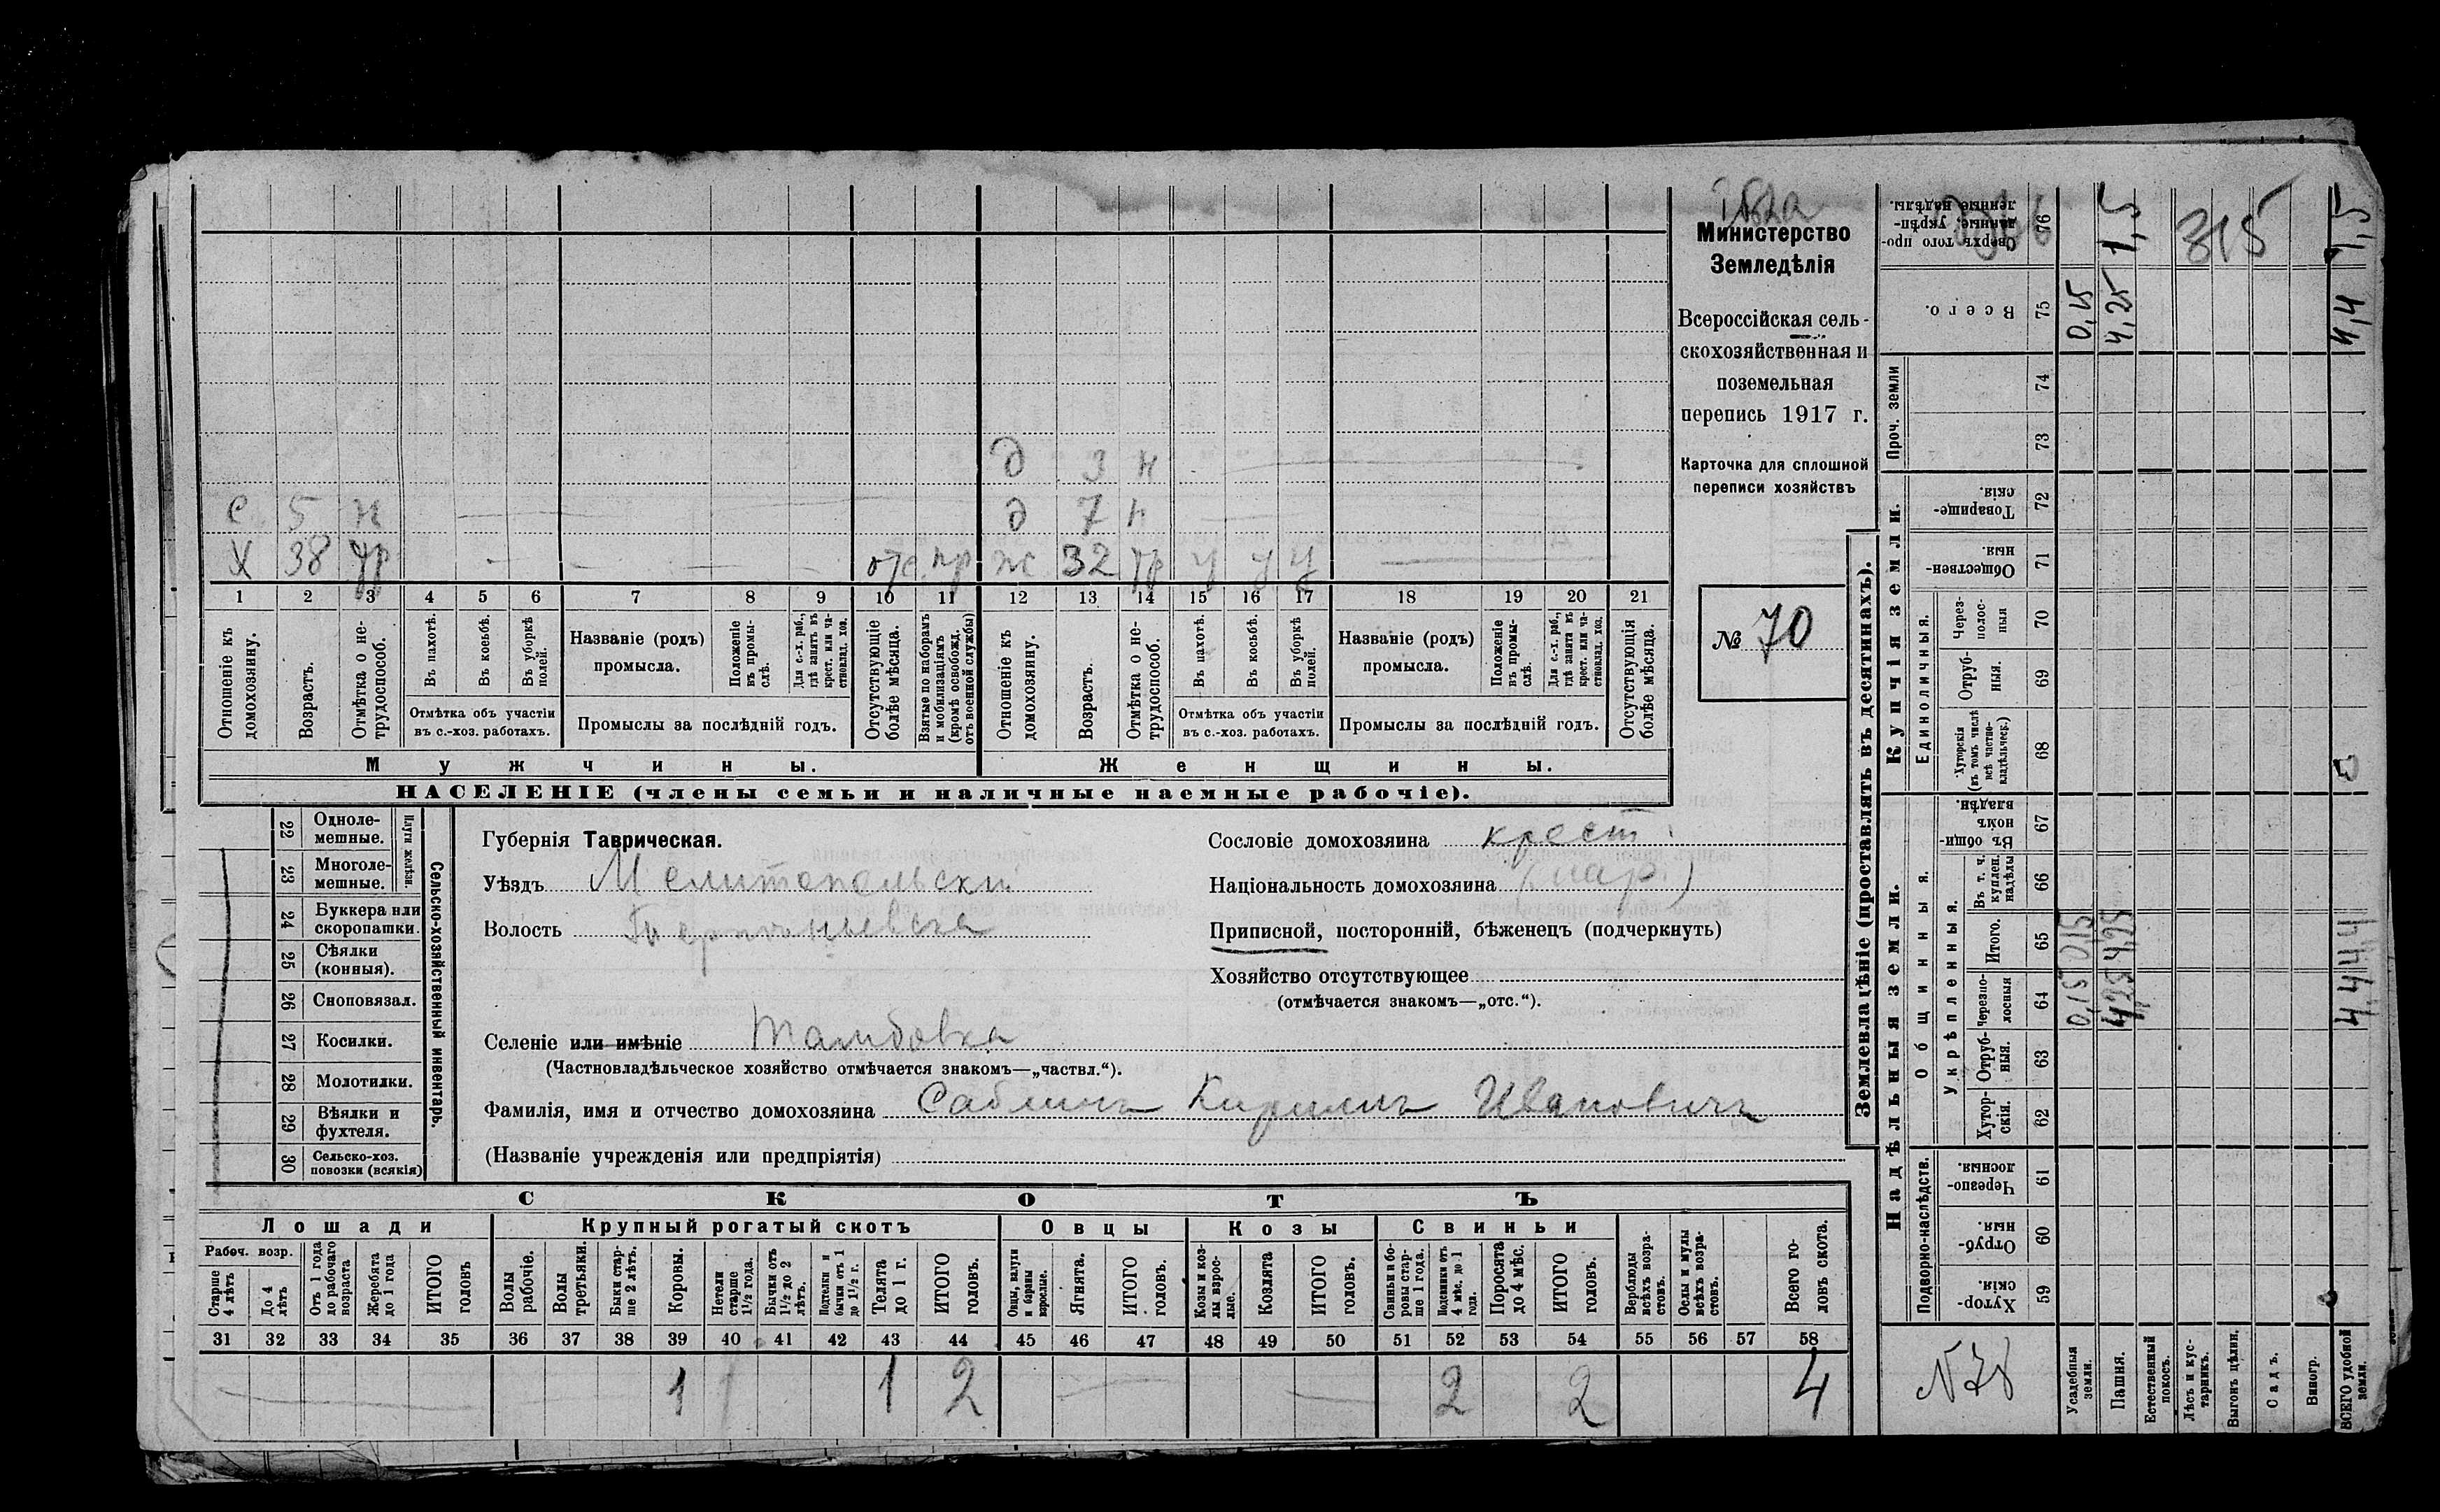 Министерство
Земледѣлія
Всероссійская сель-
скохозяйственная и
поземельная
перепись 1917 г.
Карточка для сплошной
переписи хозяйствъ
№ 70
д 3 н
с 5 н д 7 н
х 38 тр отс. пр ж 32 тр у у у
1 2 3 4 5 6 7 8 9 10 11 12 13 14 15 16 17 18 19 20 21
Отношеніе къ домохозяину.
Возрастъ.
Отмѣтка о не-трудоспособ.
Въ пахотѣ.
Въ косьбѣ.
Въ уборкѣ полей.
Отмѣтка объ участіи
въ с.-хоз. работахъ.
Названіе (родъ)
промысла.
Положеніе въ промы-слѣ.
Для с.-х. раб., гдѣ занятъ въ крест. или ча-стновлад. хоз.
Промыслы за послѣдній годъ.
Отсутствующіе болѣе мѣсяца.
Взятые по наборамъ и мобилизаціямъ (кромѣ освобожд. отъ военной службы)
Отношеніе къ домохозяину.
Возрастъ.
Отмѣтка о не-трудоспособ.
Въ пахотѣ.
Въ косьбѣ.
Въ уборкѣ полей.
Отмѣтка объ участіи
въ с.-хоз. работахъ.
Названіе (родъ)
промысла.
Положеніе въ промы-слѣ.
Для с.-х. раб., гдѣ занята въ крест. или ча-стновлад. хоз.
Промыслы за послѣдній годъ.
Отсутствующія болѣе мѣсяца.
Мужчины. Женщины.
НАСЕЛЕНІЕ (члены семьи и наличные наемные рабочіе).
22 Одноле-мешные.
23 Многоле-мешные.
Плуги желѣзн.
24 Буккера или скоропашки.
25 Сѣялки (конныя).
26 Сноповязал.
27 Косилки.
28 Молотилки.
29 Вѣялки и фухтеля.
30 Сельско-хоз. повозки (всякія)
Сельско-хозяйственный инвентарь.
Губернія Таврическая.
Уѣздъ Мелитопольскій
Волость
Селеніе или имѣніе Тамбовка
(Частновладѣльческое хозяйство отмѣчается знакомъ—„частвл.“).
Фамилія, имя и отчество домохозяина Саблинъ Кириллъ Ивановичъ
(Названіе учрежденія или предпріятія)
Сословіе домохозяина крест.
Національность домохозяина
Приписной, посторонній, бѣженец (подчеркнуть)
Хозяйство отсутствующее
(отмѣчается знакомъ—„отс.“).
СКОТЪ
Лошади Крупный рогатый скотъ Овцы Козы Свиньи
Рабоч. возр.
Старше 4 лѣтъ
До 4 лѣтъ
Отъ 1 года до рабочаго возраста
Жеребята до 1 года
ИТОГО головъ
Волы рабочіе.
Волы третьяки.
Быки стар-ше 2 лѣтъ.
Коровы.
Нетели старше 1½ года.
Бычки отъ 1½ до 2 лѣтъ.
Подтелки и бычки отъ 1 до 1½ г.
Телята до 1 г.
ИТОГО головъ.
Овцы, валухи и бараны взрослые.
Ягнята.
ИТОГО головъ.
Козы и коз-лы взрос-лые.
Козлята
ИТОГО головъ.
Свиньи и бо-ровы стар-ше 1 года.
Подсвинки отъ 4 мѣс. до 1 года.
Поросята до 4 мѣс.
ИТОГО головъ.
Верблюды всѣхъ возра-стовъ.
Ослы и мулы всѣхъ возра-стовъ.
Всего го-ловъ скота.
31 32 33 34 35 36 37 38 39 40 41 42 43 44 45 46 47 48 49 50 51 52 53 54 55 56 57 58
1 1 2 2 2 4
Землевладѣніе (проставлять въ десятинахъ).
Надѣльныя земли. Купчія земли.
Проч. земли
Подворно-наслѣдств.
Общинныя.
Укрѣпленныя.
Единоличныя.
Сверхъ того про-данные, укрѣп-ленные надѣлы. 76
Всего. 75
74
73
Товарище-скія. 72
Обществен-ныя. 71
Через-полос-ныя 70
Отруб-ныя. 69
Хуторскія (въ томъ числѣ всѣ частно-владѣльческ.) 68
Въ общи-номъ владѣн. 67
Въ т. ч. куплен. надѣлы 66
Итого. 65
Черезпо-лосныя 64
Отруб-ныя. 63
Хутор-скія. 62
Черезпо-лосныя. 61
Отруб-ныя. 60
Хутор-скія. 59
Усадебныя земли. 0,15 0,15 0,15
Пашня. 4,25 4,25 4,25 1,5
Естественный покосъ.
Лѣсъ и кус-тарникъ.
Выгонъ цѣлин.
Садъ.
Виногр.
ВСЕГО удобной земли. 4,4 4,4 4,4 1,5
315